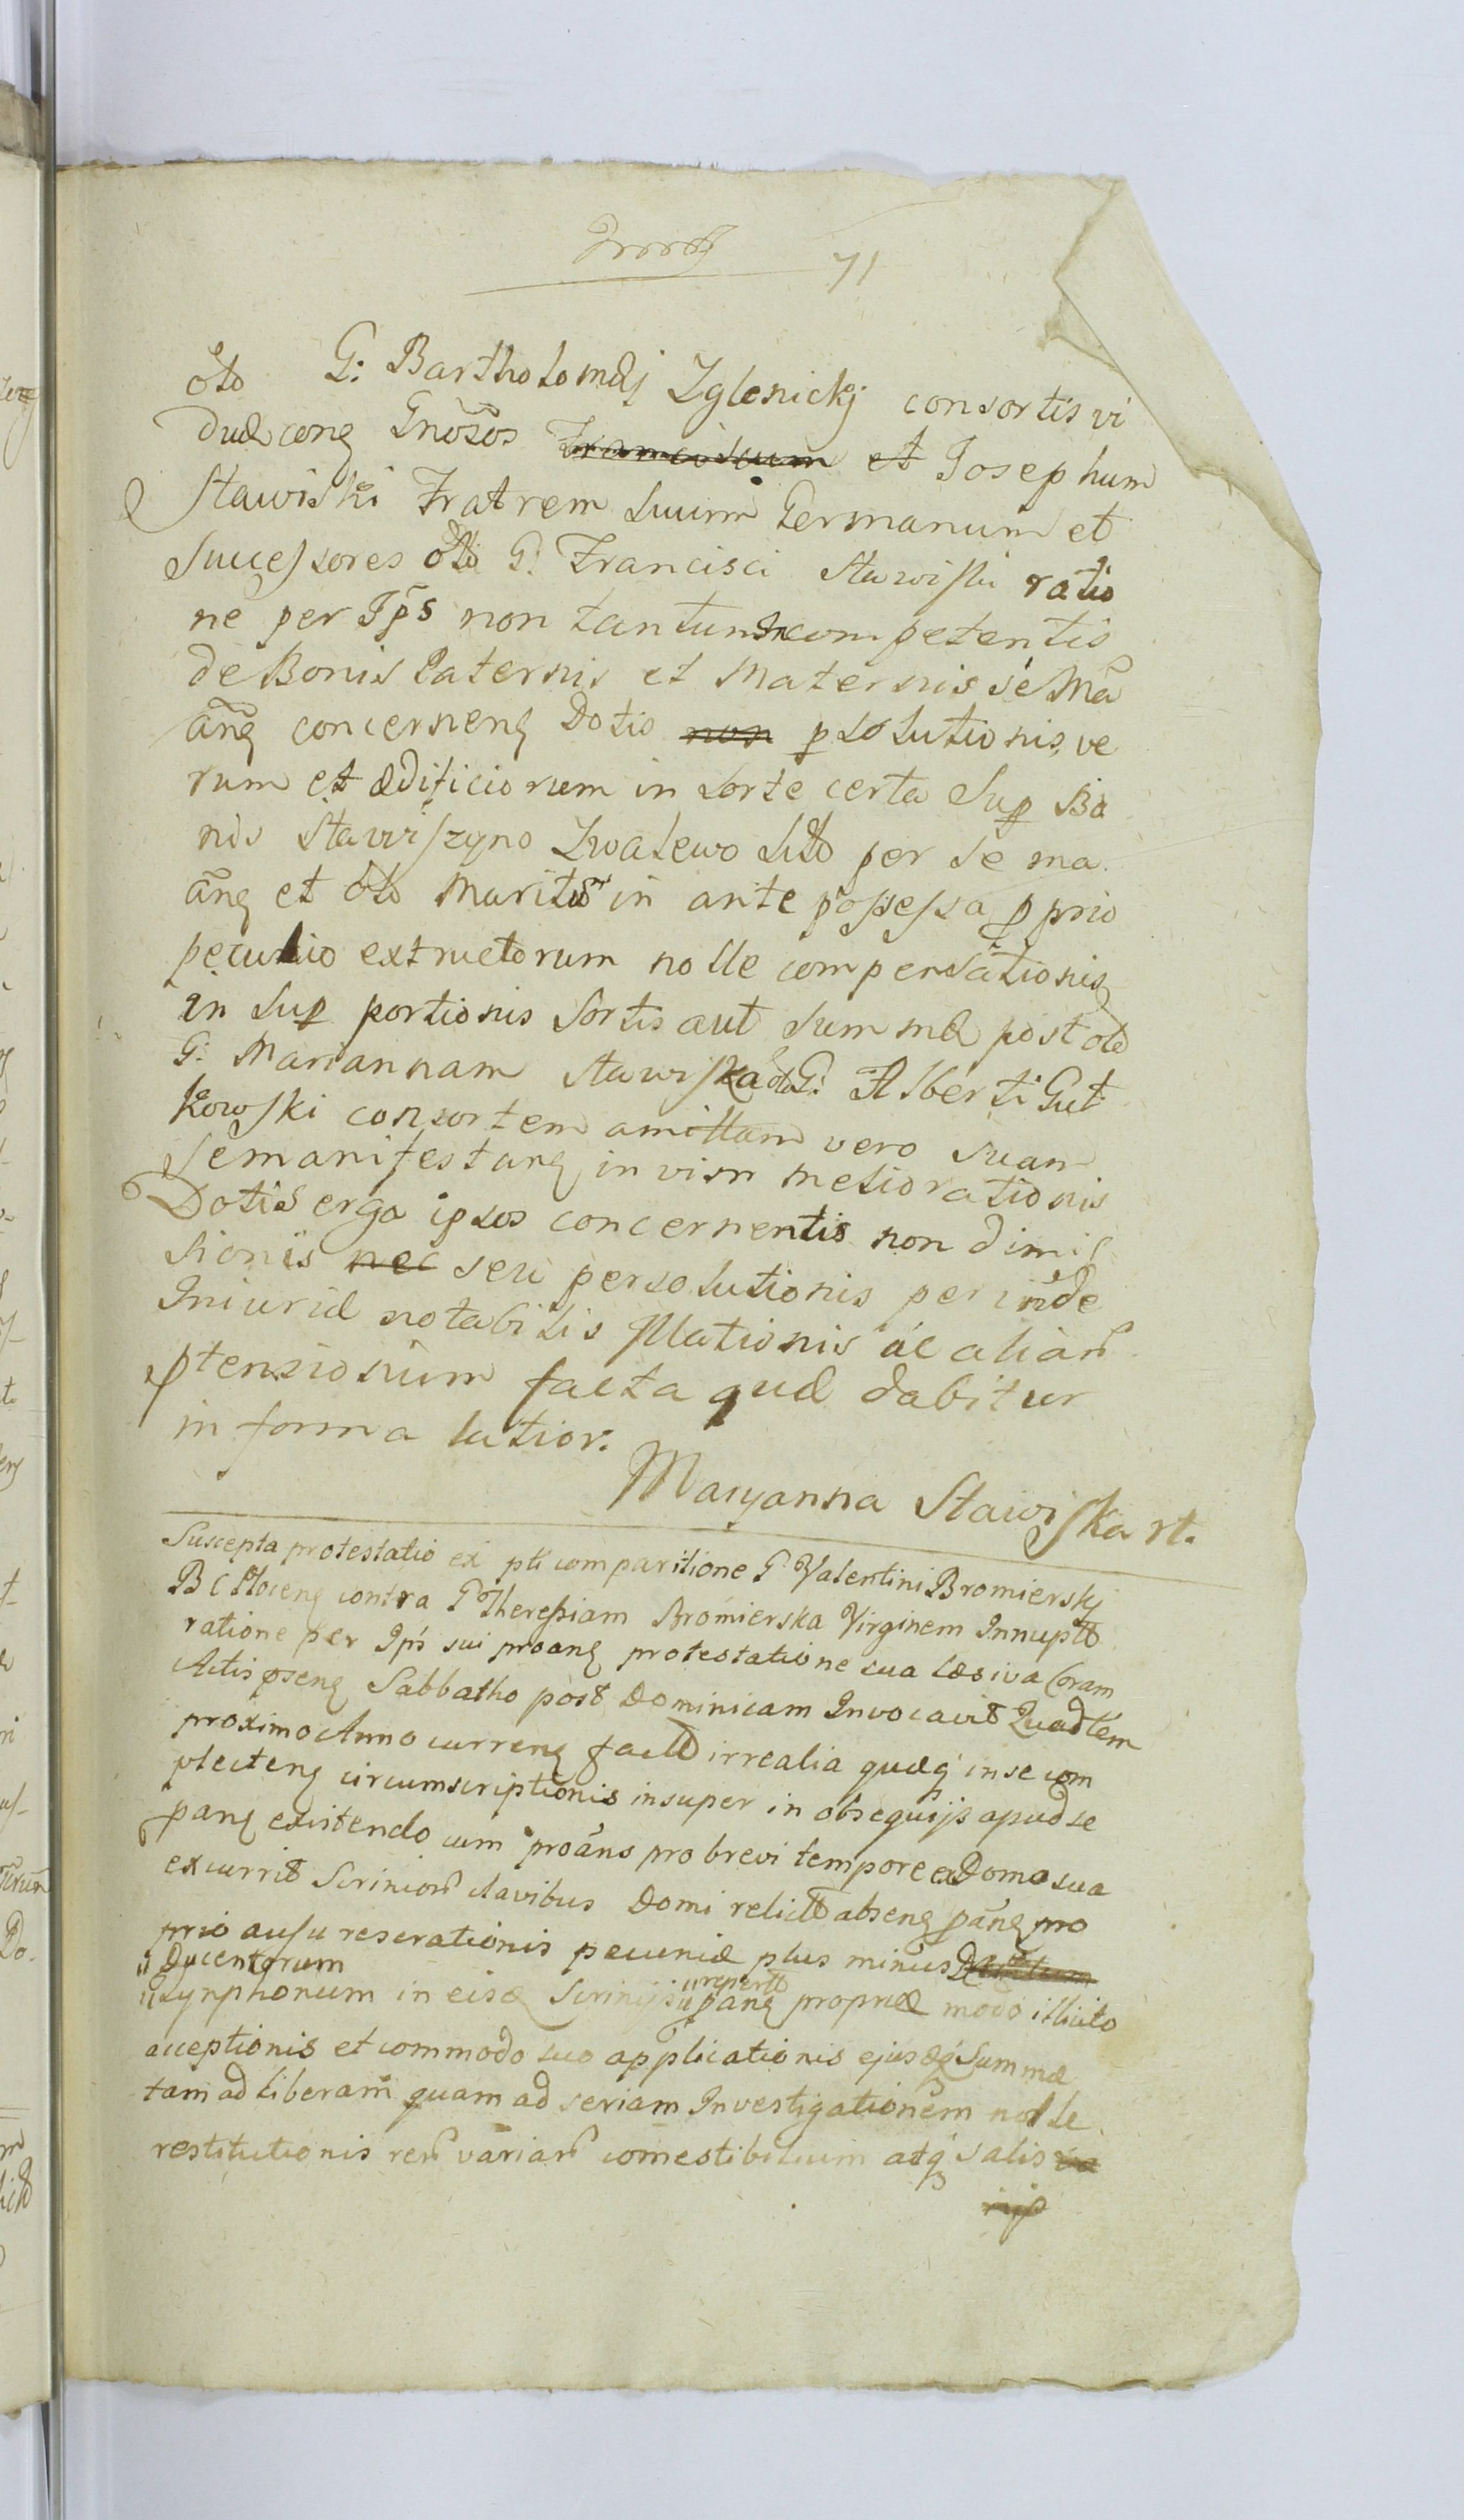 71
oło G: Bartholomæj Zglenickj consortis vi
duæ cong Gnõsos Franciscum et Josephum
Stawiski Fratrem suum Germanum et
Successores oło G: Francisci Stawiski ratio
ne per Ips non tantum competentis
de Bonis Paternis et Maternis se Ma
ãng concerneng Dotis non psolutionis, ve
rum et ædificiorum in sorte certa Sup Bo
nis Stawiszyno Zwalewo sito per se ma
ãng et oło Maritum in ante possessa pprio
peculio extructorum nolle compensationis
in sup portionis Sortis aut summæ post oło
G: Mariannam Stawiska oło G: Alberti Gut
kowski consortem amittam vero suam
se manifestang in vim meliorationis
Dotis ergo ipsos concernentis non dimis
sionis nec seu persolutionis perinde
Iniuriæ notabilis Illationis ac aliar
ptensionum facta quæ dabitur
in forma latior.
Maryanna Stawiska rt.
Suscepta protestatio ex pti comparitione G Valentini Bromierskj
B C Ploceng contra G Theressiam Bromierska Virginem Innuptã
ratione per Ips sui proang protestatione sua læsiva Coram
Actis pseng Sabbatho post Dominicam Invocavit Quadtem
proximo Anno curreng facta irrealia quæq in se com
plecteng circumscriptionis insuper in obsequijs apud se
pang existendo cum proãns pro brevi tempore ex Domo sua
excurrit Scrinior clavibus Domi relictis abseng pãng pro
prio ausu reserationis pecuniæ plus minus
Ducentorum
Tynphonum in eisd Scrinijs repert pang propriæ modo illicito
acceptionis et commodo suo applicationis ejusdq Summæ
tam ad liberam quam ad seriam Investigationem nolle
restitutionis rer variar comestibilium atq salis